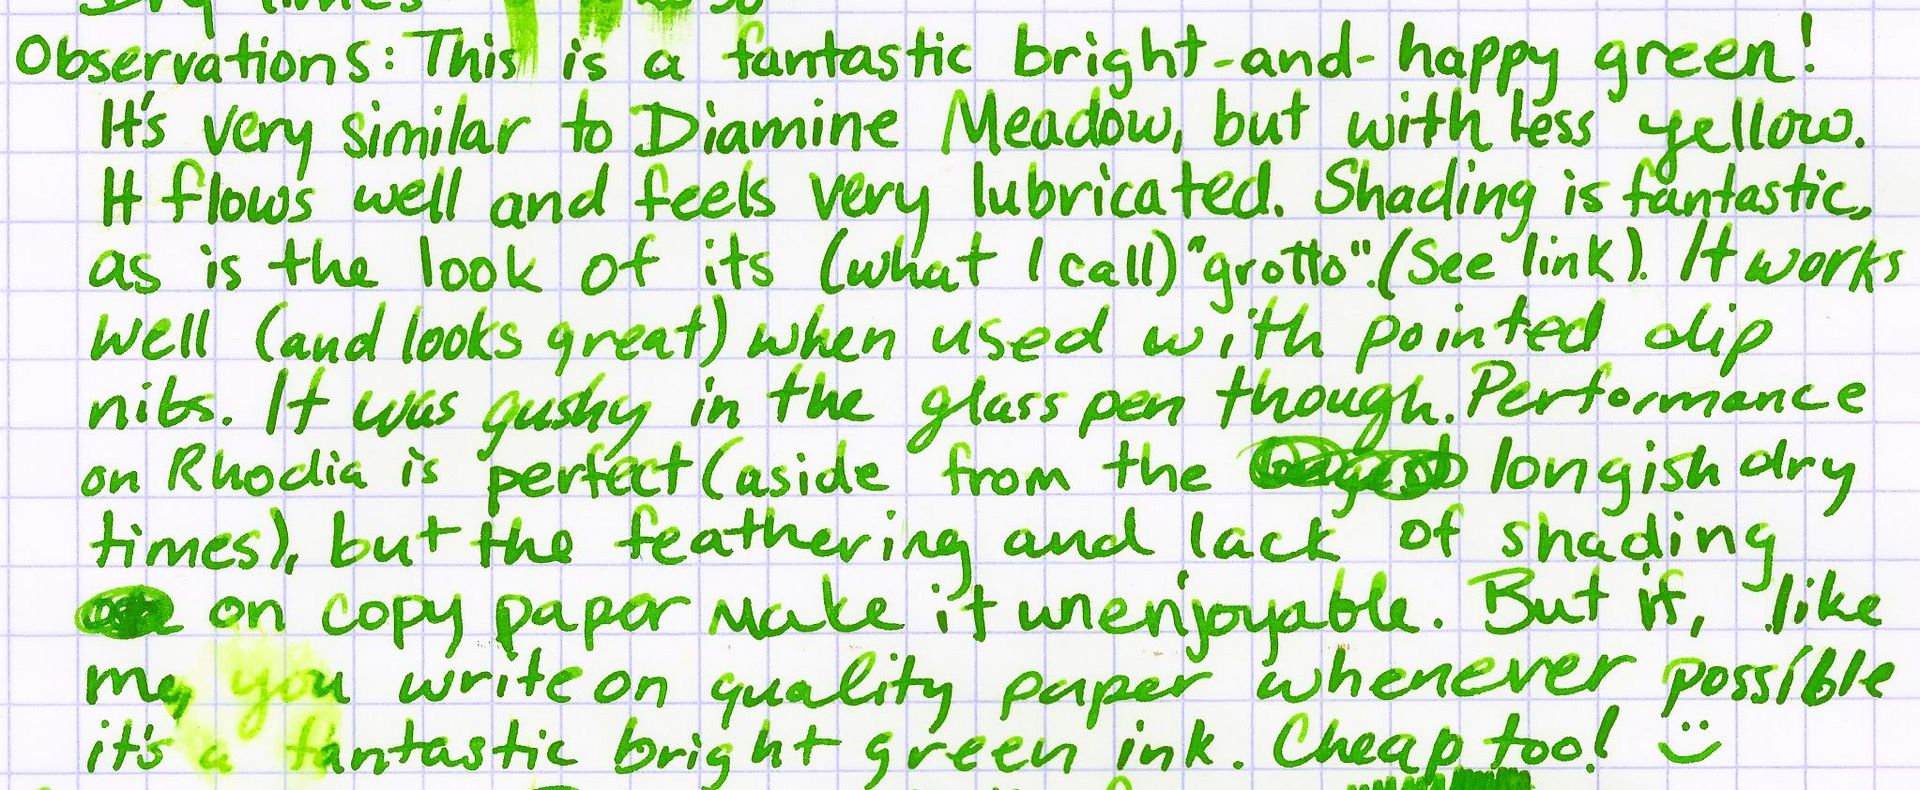 Dry Times
Observations: This is a fantastic bright-and-happy green!
It's very similar to Diamine Meadow, but with less yellow.
It flows well and feels very lubricated. Shading is fantastic,
as is the look of its (what I call) "grotto". (See link). It works
well (and looks great) when used with pointed dip
nibs. It was gushy in the glass pen though. Performance
on Rhodia is perfect (aside from the longish dry
times), but the feathering and lack of shading
on copy paper make it unenjoyable. But if, like
me, you write on quality paper whenever possible
it's a fantastic bright green ink. Cheap too! :)